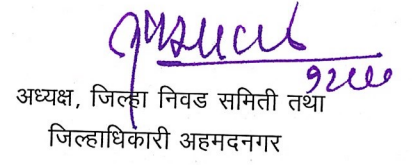 अध्यक्ष, जिल्हा निवड समिती तथा
जिल्हाधिकारी अहमदनगर